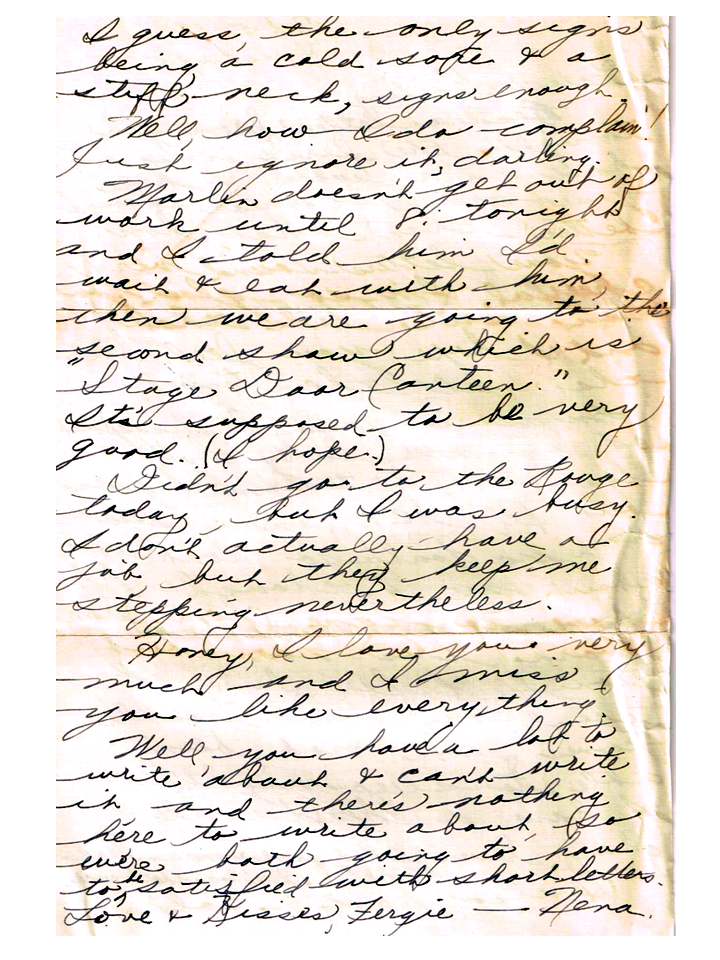 I guess, the only signs
being a cold sore & a
stiff neck, signs enough.
Well, how I do complain!
Just ignore it, darling.
Marlin doesn't get out of
work until 8: tonight
and I told him I'd
wait & eat with him,
then we are going to the
second show which is
"Stage Door Canteen."
It's supposed to be very
good. (I hope.)
Didn't go to the Rouge
today, but I was busy.
I don't actually have a
job but they keep me
stepping nevertheless.
Honey, I love you very
much and I miss
you like everything.
Well you have a lot to
write about & can't write
it and there's nothing
here to write about, so
we're both going to have
to be satisfied with short letters.
Love & Kisses, Fergie — Nena.